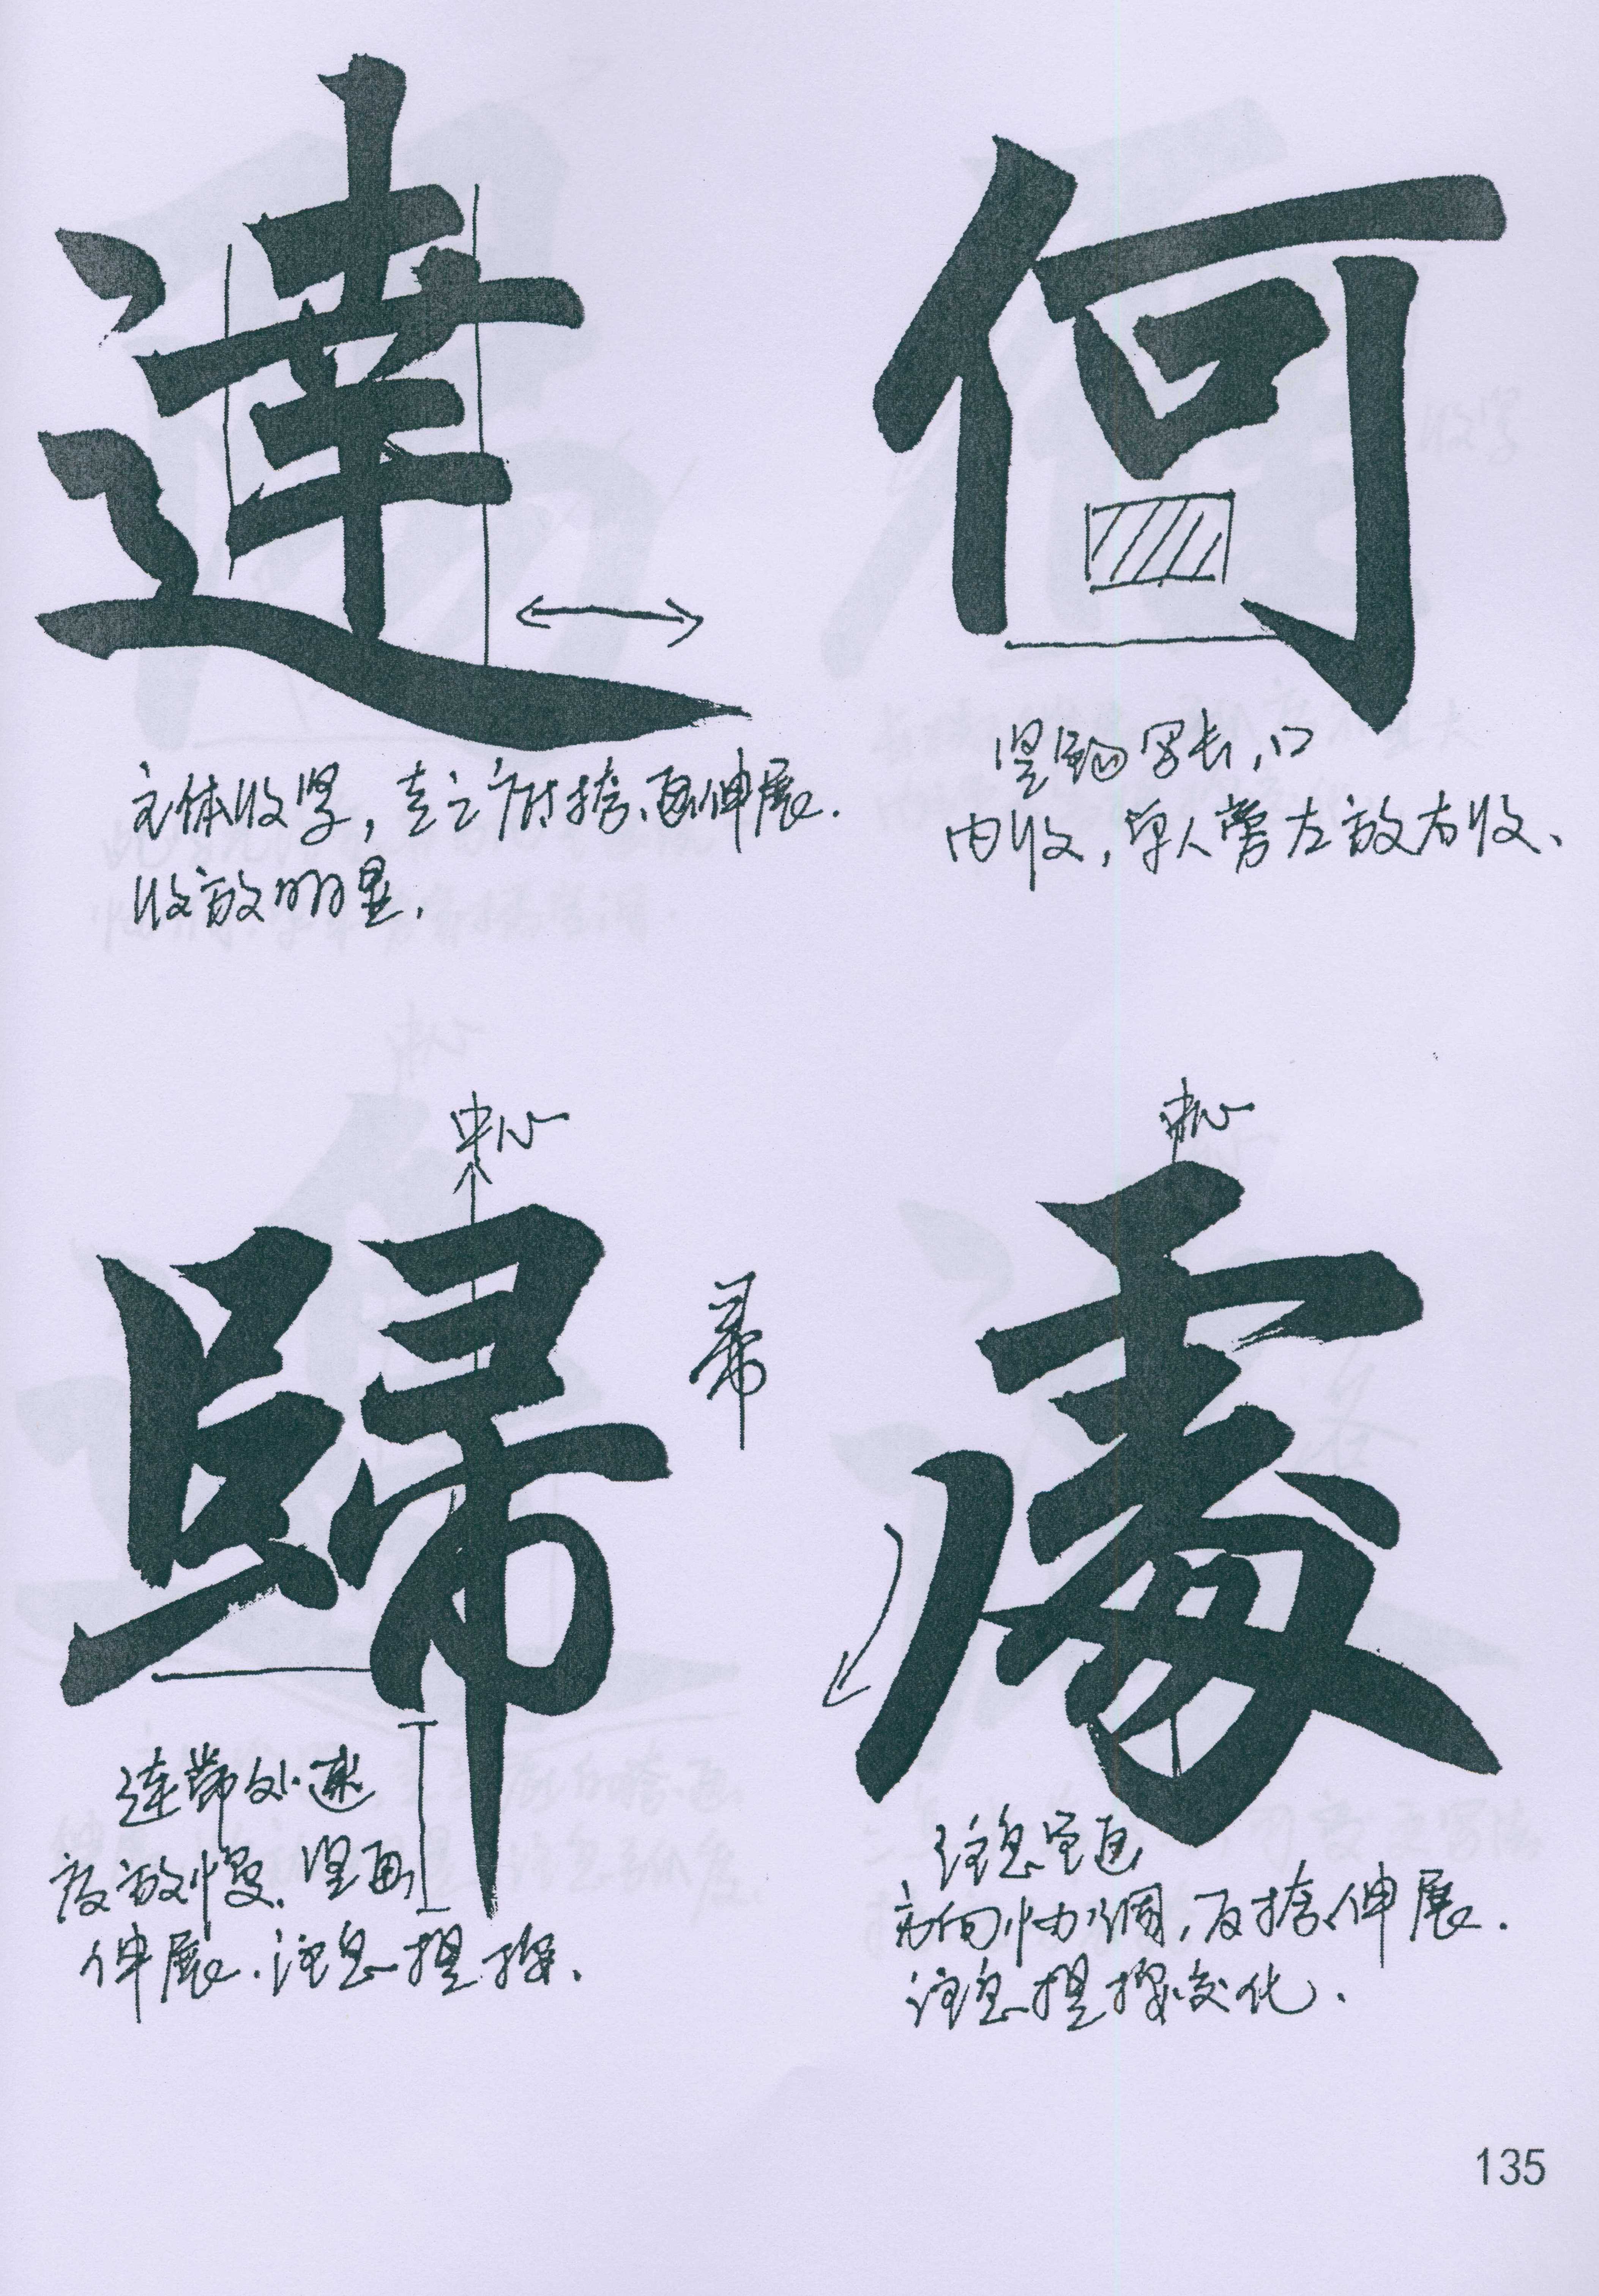 達
主体收紧,走之底捺画伸展.
收放明显.
何
竖钩写长,口
内收,单人旁左放右收、
中心
歸
帚
连带处速
度放慢.竖画
伸展.注意提按、
中心
處
注意笔画
方向协调,反捺伸展.
注意提按变化.
135